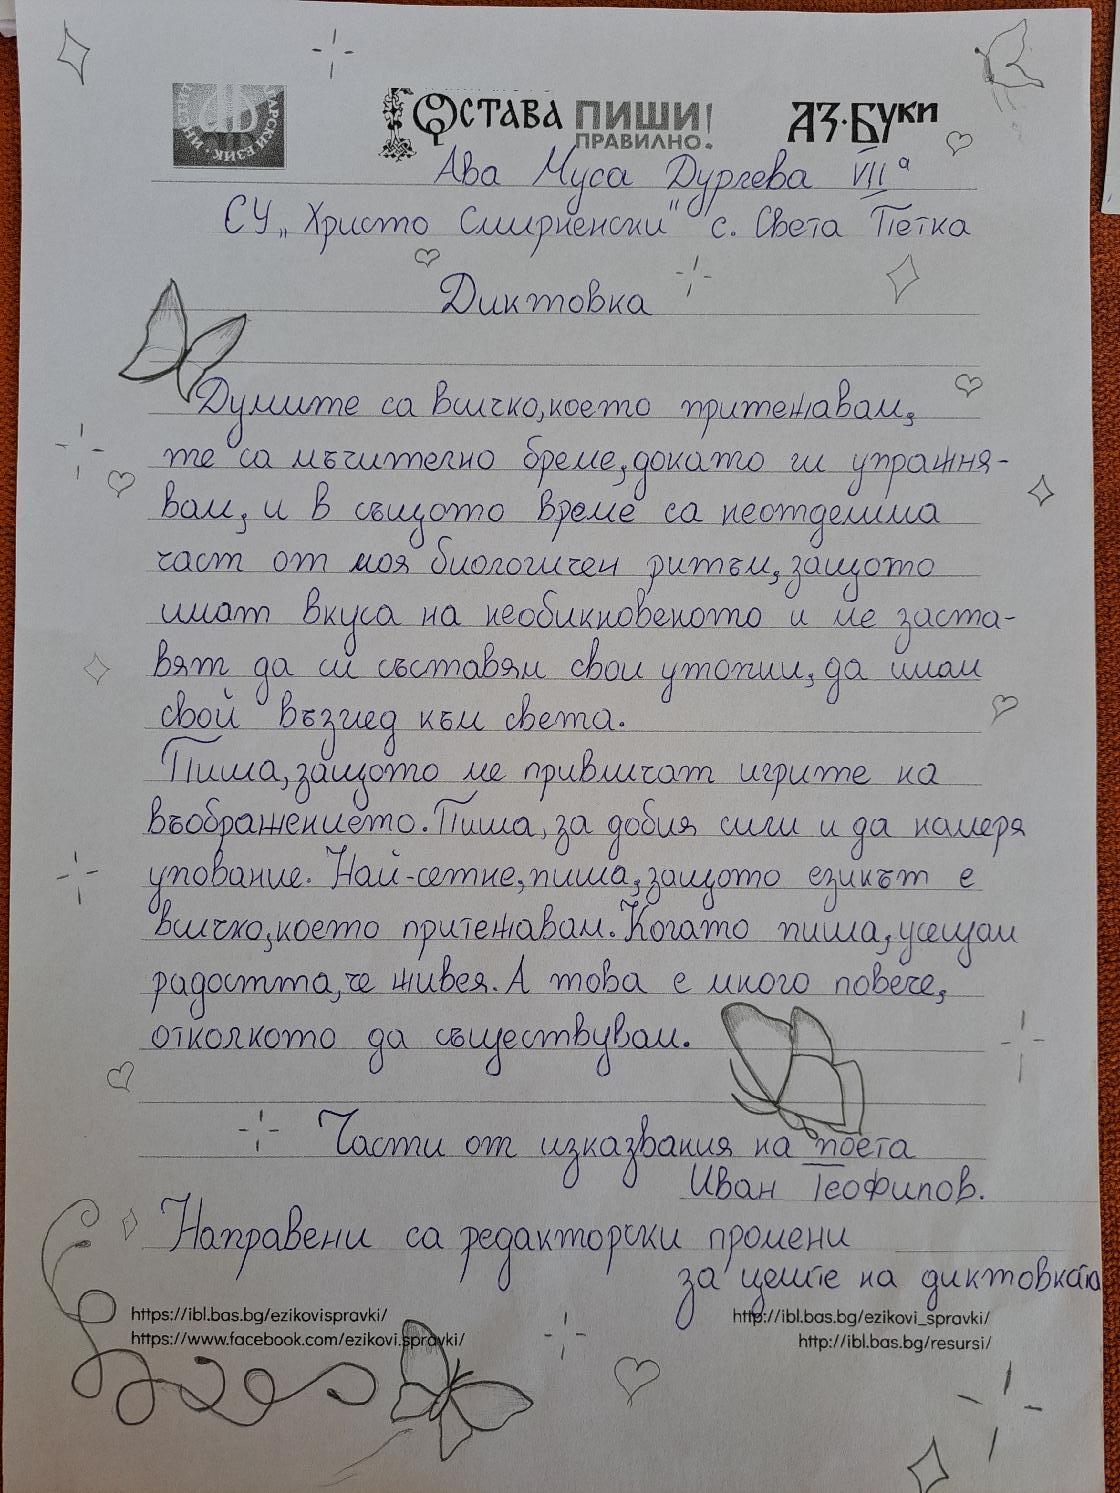 ОСТАВА ПИШИ! ПРАВИЛНО. АЗ·БУКИ
Ава Муса Дургева VIIа
СУ „Христо Смирненски" с. Света Петка
Диктовка
Думите са всичко, което притежавам,
те са мъчително бреме, докато ги упражня-
вам, и в същото време са неотделима
част от моя биологичен ритъм, защото
имат вкуса на необикновеното и ме заста-
вят да си съставям свои утопии, да имам
свой възглед към света.
Пиша, защото ме привличат игрите на
въображението. Пиша, за добия сили и да намеря
упование. Най-сетне, пиша, защото езикът е
всичко, което притежавам. Когато пиша, усещам
радостта, че живея. А това е много повече,
отколкото да съществувам.
Части от изказвания на поета
Иван Теофилов.
Направени са редакторски промени
за целите на диктовката
https://ibl.bas.bg/ezikovispravki/ http://ibl.bas.bg/ezikovi_spravki/
https://www.facebook.com/ezikovi.spravki/ http://ibl.bas.bg/resursi/